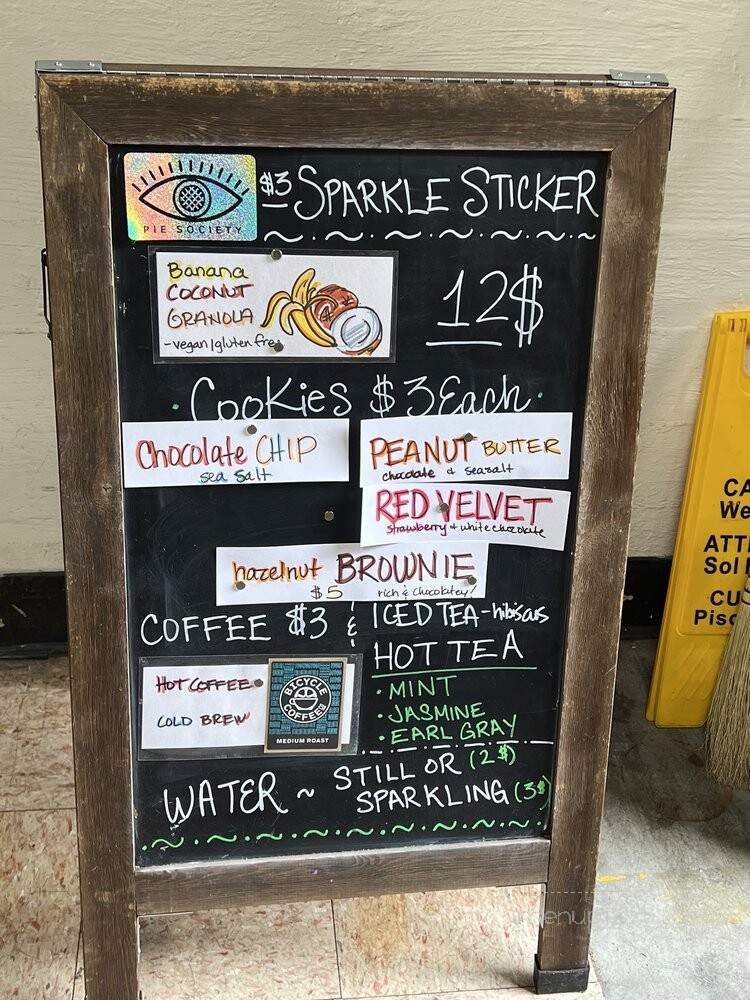 $3 SPARKLE STICKER
PIE SOCIETY
Banana
COCONUT
GRANOLA
-vegan/gluten free
12$
Cookies $3 Each
Chocolate CHIP
sea salt
PEANUT BUTTER
chocolate & seasalt
RED VELVET
strawberry + white chocolate
hazelnut BROWNIE
$5 rich & chocolatey!
COFFEE $3 & ICED TEA-hibiscus
HOT TEA
HOT COFFEE
COLD BREW
BICYCLE
COFFEE
MEDIUM ROAST
· MINT
· JASMINE
· EARL GRAY
WATER ~ STILL OR (2$)
SPARKLING (3$)
CA
We
ATT
Sol
CU
Piso